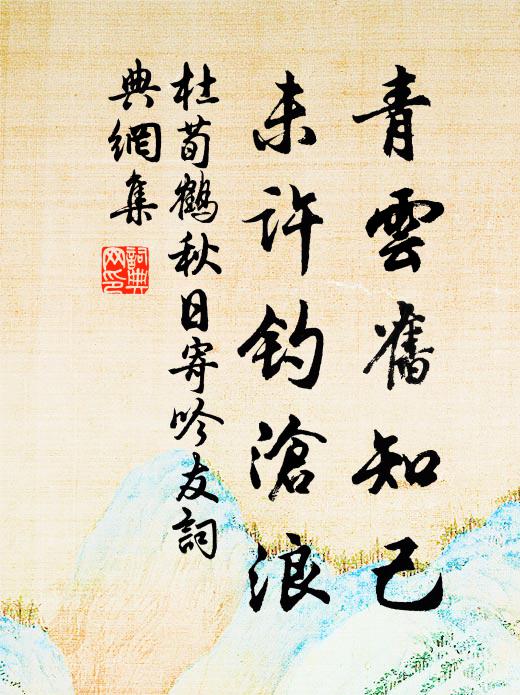 青雲舊知己
未許釣滄浪
杜荀鶴秋日寄吟友詞
典網集
詞典網印